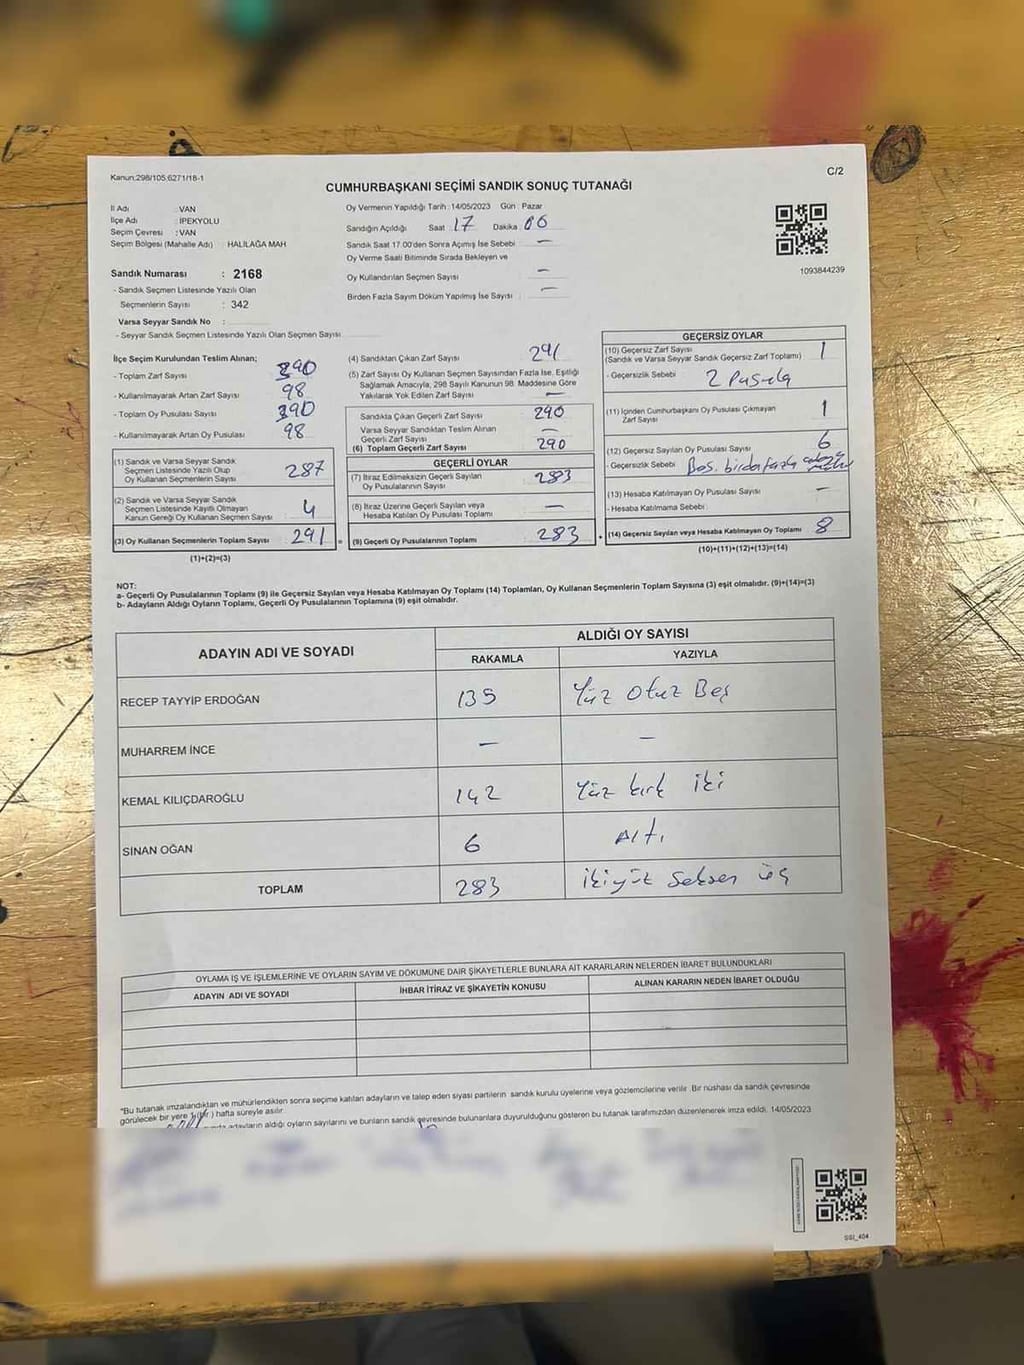 Kanun:298/105.6271/18-1
C/2
CUMHURBAŞKANI SEÇİMİ SANDIK SONUÇ TUTANAĞI
İl Adı : VAN
İlçe Adı : İPEKYOLU
Seçim Çevresi : VAN
Seçim Bölgesi (Mahalle Adı) : HALİLAĞA MAH
Sandık Numarası : 2168
- Sandık Seçmen Listesinde Yazılı Olan
Seçmenlerin Sayısı : 342
Varsa Seyyar Sandık No :
- Seyyar Sandık Seçmen Listesinde Yazılı Olan Seçmen Sayısı
Oy Vermenin Yapıldığı Tarih : 14/05/2023 Gün : Pazar
Sandığın Açıldığı Saat 17 Dakika 06
Sandık Saat 17.00'den Sonra Açımış İse Sebebi —
Oy Verme Saati Bitiminde Sırada Bekleyen ve
Oy Kullandırılan Seçmen Sayısı —
Birden Fazla Sayım Döküm Yapılmış İse Sayısı —
1093844239
İlçe Seçim Kurulundan Teslim Alınan;
- Toplam Zarf Sayısı 390
- Kullanılmayarak Artan Zarf Sayısı 98
- Toplam Oy Pusulası Sayısı 390
- Kullanılmayarak Artan Oy Pusulası 98
(1) Sandık ve Varsa Seyyar Sandık
Seçmen Listesinde Yazılı Olup
Oy Kullanan Seçmenlerin Sayısı 287
(2) Sandık ve Varsa Seyyar Sandık
Seçmen Listesinde Kayıtlı Olmayan
Kanun Gereği Oy Kullanan Seçmen Sayısı 4
(3) Oy Kullanan Seçmenlerin Toplam Sayısı 291 =
(1)+(2)=(3)
(4) Sandıktan Çıkan Zarf Sayısı 291
(5) Zarf Sayısı Oy Kullanan Seçmen Sayısından Fazla İse, Eşitliği
Sağlamak Amacıyla, 298 Sayılı Kanunun 98. Maddesine Göre
Yakılarak Yok Edilen Zarf Sayısı —
Sandıkta Çıkan Geçerli Zarf Sayısı 290
Varsa Seyyar Sandıktan Teslim Alınan
Geçerli Zarf Sayısı —
(6) Toplam Geçerli Zarf Sayısı 290
GEÇERLİ OYLAR
(7) İtiraz Edilmeksizin Geçerli Sayılan
Oy Pusulalarının Sayısı 283
(8) İtiraz Üzerine Geçerli Sayılan veya
Hesaba Katılan Oy Pusulası Toplamı —
(9) Geçerli Oy Pusulalarının Toplamı 283 +
GEÇERSİZ OYLAR
(10) Geçersiz Zarf Sayısı
(Sandık ve Varsa Seyyar Sandık Geçersiz Zarf Toplamı) 1
- Geçersizlik Sebebi 2 Pusula
(11) İçinden Cumhurbaşkanı Oy Pusulası Çıkmayan
Zarf Sayısı 1
(12) Geçersiz Sayılan Oy Pusulası Sayısı 6
- Geçersizlik Sebebi Boş. birden fazla
(13) Hesaba Katılmayan Oy Pusulası Sayısı —
- Hesaba Katılmama Sebebi
(14) Geçersiz Sayılan veya Hesaba Katılmayan Oy Toplamı 8
(10)+(11)+(12)+(13)=(14)
NOT:
a- Geçerli Oy Pusulalarının Toplamı (9) ile Geçersiz Sayılan veya Hesaba Katılmayan Oy Toplamı (14) Toplamları, Oy Kullanan Seçmenlerin Toplam Sayısına (3) eşit olmalıdır. (9)+(14)=(3)
b- Adayların Aldığı Oyların Toplamı, Geçerli Oy Pusulalarının Toplamına (9) eşit olmalıdır.
ADAYIN ADI VE SOYADI ALDIĞI OY SAYISI
RAKAMLA YAZIYLA
RECEP TAYYİP ERDOĞAN 135 Yüz Otuz Beş
MUHARREM İNCE — —
KEMAL KILIÇDAROĞLU 142 Yüz kırk iki
SİNAN OĞAN 6 Altı
TOPLAM 283 ikiyüz seksen üç
OYLAMA İŞ VE İŞLEMLERİNE VE OYLARIN SAYIM VE DÖKÜMÜNE DAİR ŞİKAYETLERLE BUNLARA AİT KARARLARIN NELERDEN İBARET BULUNDUKLARI
ADAYIN ADI VE SOYADI İHBAR İTİRAZ VE ŞİKAYETİN KONUSU ALINAN KARARIN NEDEN İBARET OLDUĞU
"Bu tutanak imzalandıktan ve mühürlendikten sonra seçime katılan adayların ve talep eden siyasi partilerin sandık kurulu üyelerine veya gözlemcilerine verilir. Bir nüshası da sandık çevresinde
görülecek bir yere 1 (bir) hafta süreyle asılır.
adayların aldığı oyların sayılarını ve bunların sandık çevresinde bulunanlara duyurulduğunu gösteren bu tutanak tarafımızdan düzenlenerek imza edildi. 14/05/2023
SSI_404